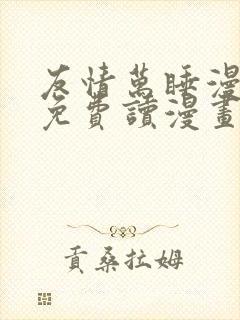 友情萬睡漫
免費讀漫畫
貢桑拉姆